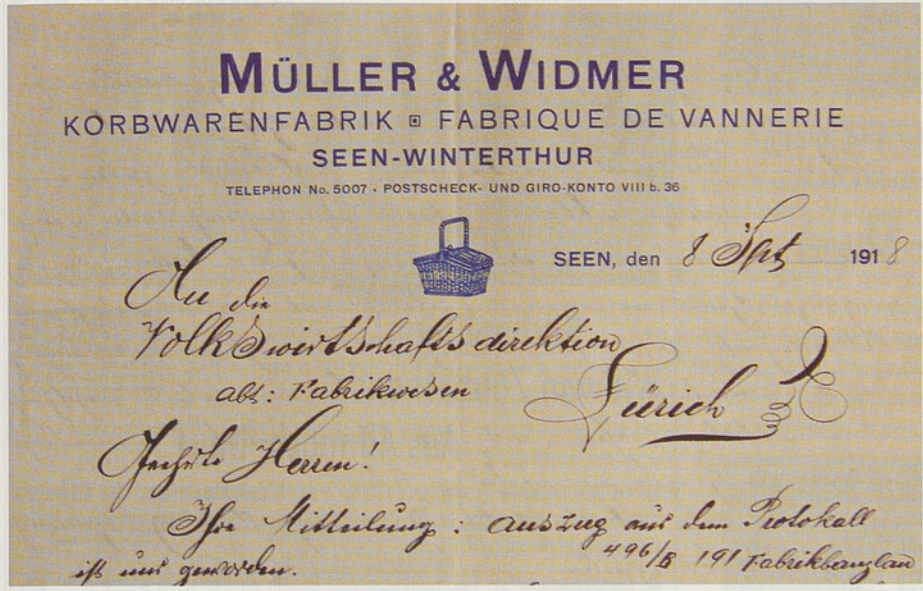 MÜLLER & WIDMER
KORBWARENFABRIK ▣ FABRIQUE DE VANNERIE
SEEN-WINTERTHUR
TELEPHON No. 5007 · POSTSCHECK- UND GIRO-KONTO VIII b. 36
SEEN, den 8 Sept 1918
An die
Volkswirtschaftsdirektion
abt: Fabrikwesen
Zürich
Geehrte Herren!
Ihre Mitteilung: auszug aus dem Protokoll
496/B 191 Fabrikbauplan
ist uns geworden.